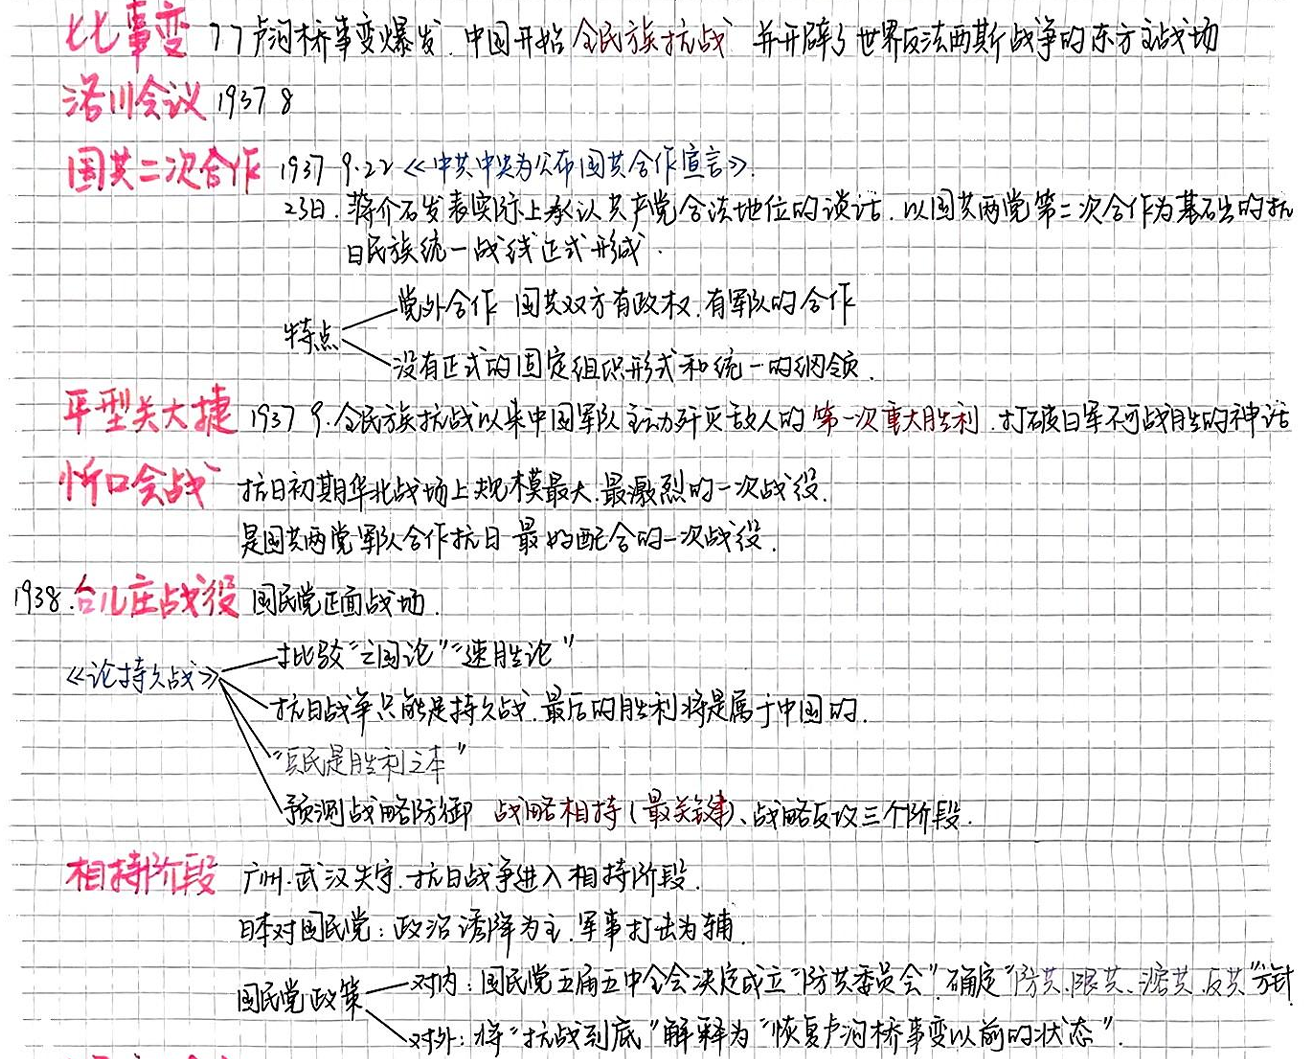 七七事变 77卢沟桥事变爆发.中国开始全民族抗战 并开辟了世界反法西斯战争的东方主战场
洛川会议 1937 8
国共二次合作 1937 9.22《中共中央为公布国共合作宣言》.
23日.蒋介石发表实际上承认共产党合法地位的谈话.以国共两党第二次合作为基础的抗
日民族统一战线正式形成.
特点
党外合作 国共双方有政权.有军队的合作
没有正式的固定组织形式和统一的纲领.
平型关大捷 1937 9.全民族抗战以来中国军队主动歼灭敌人的第一次重大胜利.打破日军不可战胜的神话
忻口会战 抗日初期华北战场上规模最大.最激烈的一次战役.
是国共两党军队合作抗日 最好配合的一次战役.
1938.台儿庄战役 国民党正面战场.
《论持久战》
批驳"亡国论""速胜论"
抗日战争只能是持久战.最后的胜利将是属于中国的.
"兵民是胜利之本"
预测战略防御 战略相持(最关键)、战略反攻三个阶段.
相持阶段 广州.武汉失守.抗日战争进入相持阶段.
日本对国民党:政治诱降为主.军事打击为辅.
国民党政策
对内:国民党五届五中全会决定成立"防共委员会".确定"防共.限共、溶共.反共"方针
对外:将"抗战到底"解释为"恢复卢沟桥事变以前的状态".